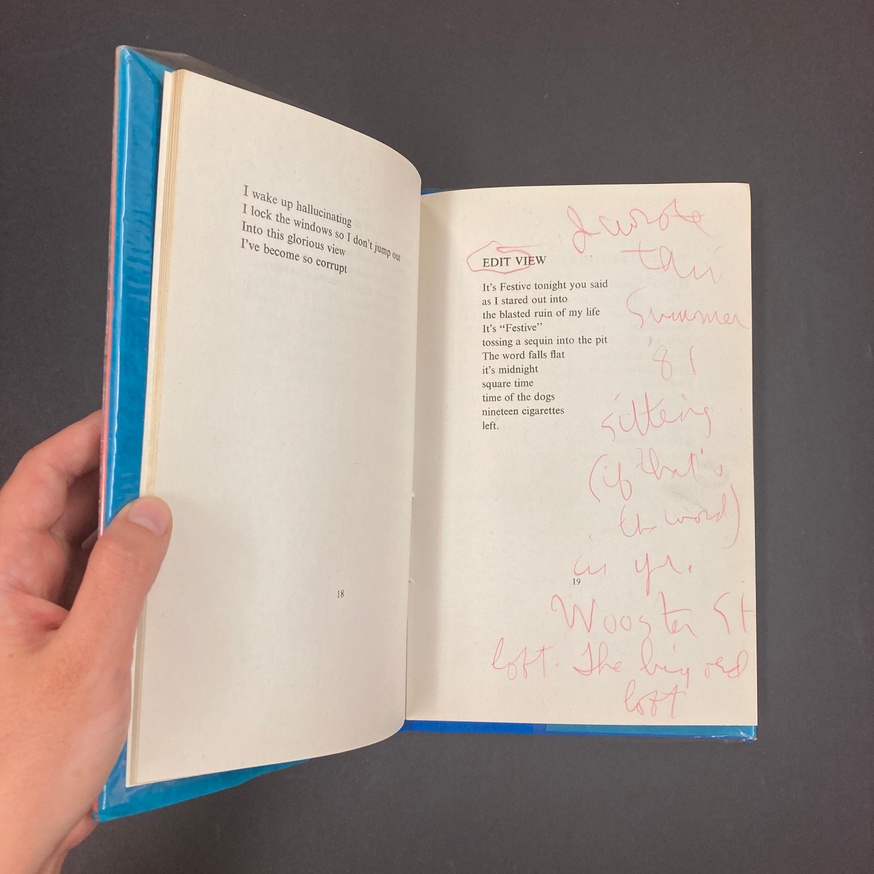 I wake up hallucinating
I lock the windows so I don't jump out
Into this glorious view
I've become so corrupt
18
EDIT VIEW
It's Festive tonight you said
as I stared out into
the blasted ruin of my life
It's “Festive”
tossing a sequin into the pit
The word falls flat
it's midnight
square time
time of the dogs
nineteen cigarettes
left.
19
I wrote
this
Summer
'81
sitting
(if that's
the word)
in yr.
Wooster St
loft. The big red
loft